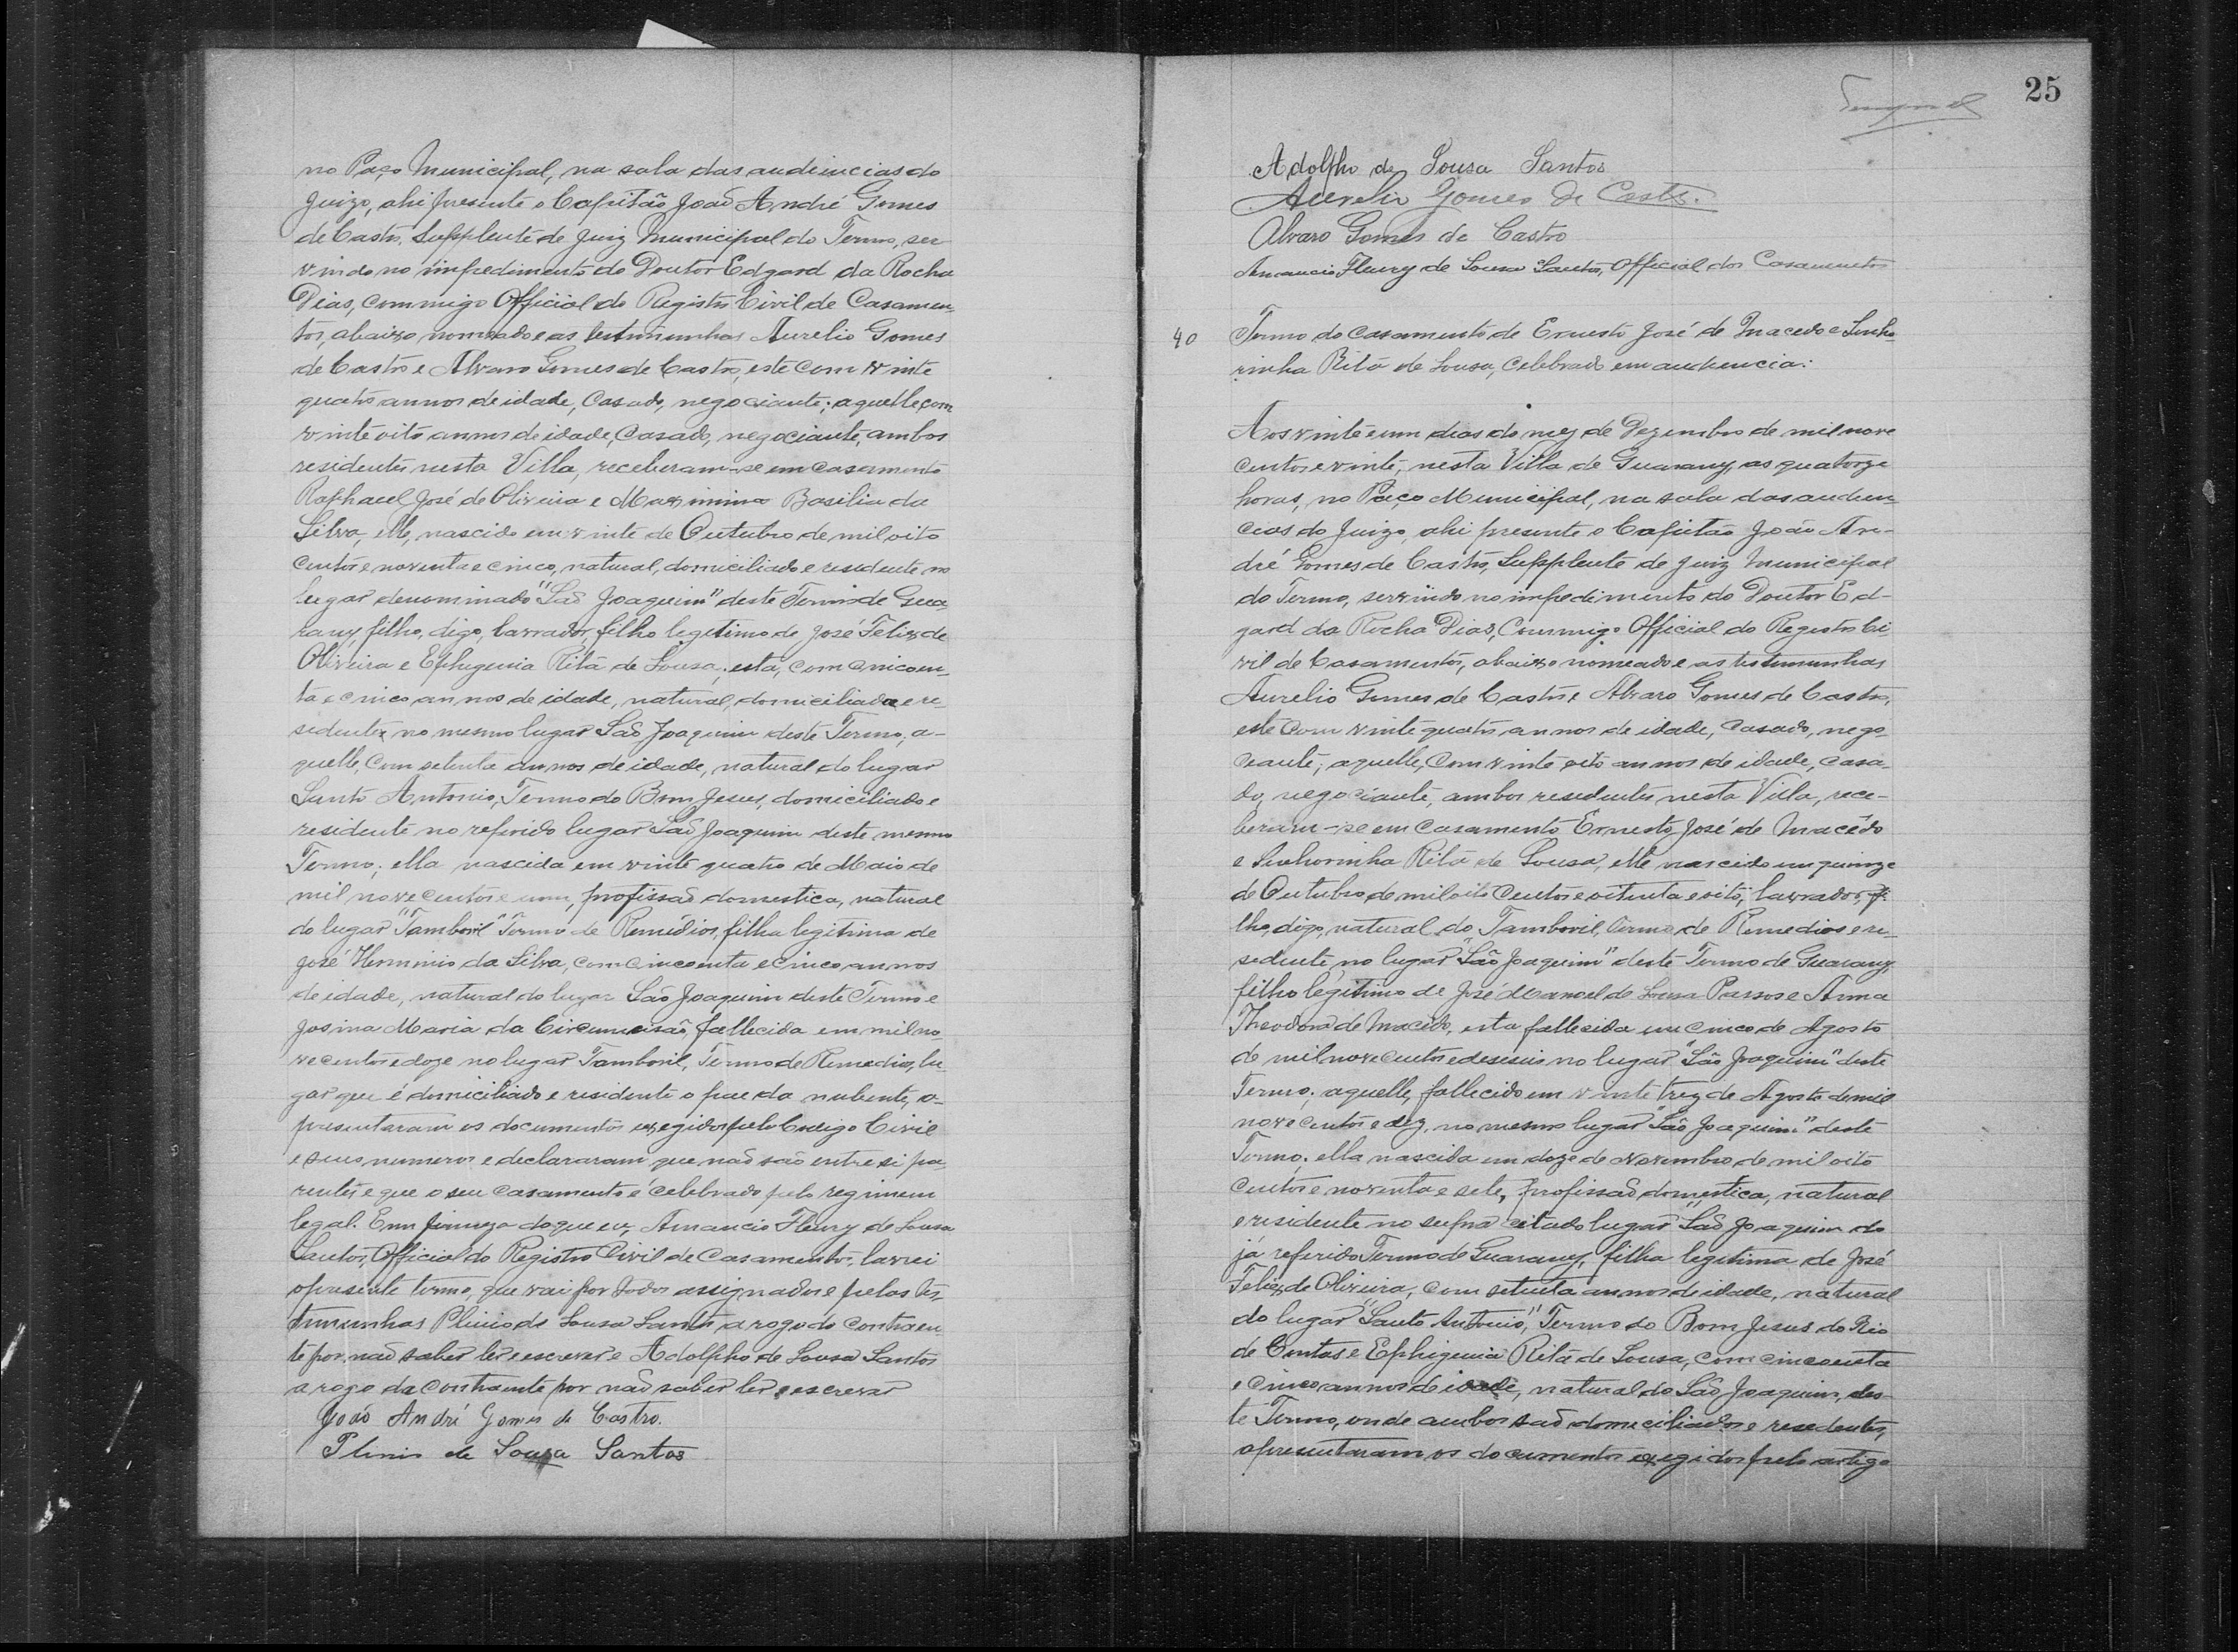 no Paço Municipal, na sala das audiencias do
Juizo, ahi presente o Capitão João André Gomes
de Castro, Supplente de Juiz Municipal do Termo, ser
vindo no impedimento do Doutor Edgard da Rocha
Dias, commigo Official do Registro Civil de Casamen-
tos, abaixo nomeado e as testimunhas Aurelio Gomes
de Castro e Alvaro Gomes de Castro, este com vinte
quatro annos de idade, casado, negociante; aquelle com
vinte oito annos de idade, casado, negociante, ambos
residentes nesta Villa, receberam-se em casamento
Raphael José de Oliveira e Maximina Basilia da
Silva, elle, nascido em vinte de Outubro de mil oito
centos e noventa e cinco, natural, domiciliado e residente no
lugar denominado "São Joaquim" deste Termo de Gua-
rany, filho, digo, lavrador, filho legitimo de José Felix de
Oliveira e Ephigenia Rita de Sousa; esta, com cincoen-
ta e cinco annos de idade, natural, domiciliada e re-
sidente no mesmo lugar São Joaquim deste Termo, a-
quelle, com setenta annos de idade, natural do lugar
Santo Antonio, Termo do Bom Jesus, domiciliado e
residente no referido lugar São Joaquim deste mesmo
Termo; ella nascida em vinte quatro de Maio de
mil novecentos e um, profissão domestica, natural
do lugar "Tamboril" Termo de Remédios, filha legitima de
José Herminio da Silva, com cincoenta e cinco annos
de idade, natural do lugar São Joaquim deste Termo e
Josina Maria da Circumcisão, fallecida em mil no-
vecentos e doze no lugar Tamboril, Termo de Remedios, lu
gar que é domiciliado e residente o pae da nubente, a-
presentaram os documentos exegidos pelo Codigo Civil
e seus numeros e declararam que não são entre si pa-
rentes e que o seu casamento é celebrado pelo regimem
legal. Em firmeza do que eu, Amancio Fleury de Sousa
Santos, Official do Registro Civil de Casamentos, lavrei
o presente termo, que vai por todos assignados e pelas tes-
timunhas Plinio de Sousa Santos a rogo do contraen-
te por não saber ler e escrever e Adolpho de Sousa Santos
a rogo da contraente por não saber ler e escrever
João André Gomes de Castro.
Plinio de Sousa Santos
25
Adolpho de Sousa Santos
Aurelio Gomes de Castro.
Alvaro Gomes de Castro
Amancio Fleury de Sousa Santos, Official dos Casamentos
40 Termo do casamento de Ernesto José de Macedo e Senho-
rinha Rita de Sousa, celebrado em audiencia:
Aos vinte e um dias do mez de Dezembro de mil nove
centos e vinte, nesta Villa de Guarany, as quatorze
horas, no Paço Municipal, na sala das audien-
cias do Juizo, ahi presente o Capitão João An-
dré Gomes de Castro, Supplente de Juiz Municipal
do Termo, servindo no impedimento do Doutor Ed-
gard da Rocha Dias, Commigo Official do Registro Ci
vil de Casamentos, abaixo nomeado e as testimunhas
Aurelio Gomes de Castro e Alvaro Gomes de Castro,
este com vinte quatro annos de idade, casado, nego-
ciante; aquelle, com vinte oito annos de idade, casa-
do, negociante, ambos residentes nesta Villa, rece-
beram-se em casamento Ernesto José de Macêdo
e Senhorinha Rita de Sousa, elle nascido em quinze
de Outubro de mil oito centos e oitenta e oito, lavrador, fi
lho, digo, natural do Tamboril, Termo de Remedios e re-
sidente no lugar "São Joaquim" deste Termo de Guarany,
filho legitimo de José Manoel de Sousa Passos e Anna
Theodora de Macedo, esta fallecida em cinco de Agosto
de mil novecentos e deseseis no lugar "São Joaquim" deste
Termo; aquelle, fallecido em vinte trez de Agosto de mil
novecentos e dez, no mesmo lugar "São Joaquim" deste
Termo; ella nascida em doze de Novembro de mil oito
centos e noventa e sete, profissão domestica, natural
e residente no supra citado lugar São Joaquim do
já referido Termo de Guarany, filha legitima de José
Felix de Oliveira, com setenta annos de idade, natural
do lugar "Santo Antonio," Termo do Bom Jesus do Rio
de Contas e Ephigenia Rita de Sousa, com cincoenta
e cinco annos de idade, natural do São Joaquim, des-
te Termo, onde ambos são domiciliados e residentes,
apresentaram os documentos exegidos pelo artigo